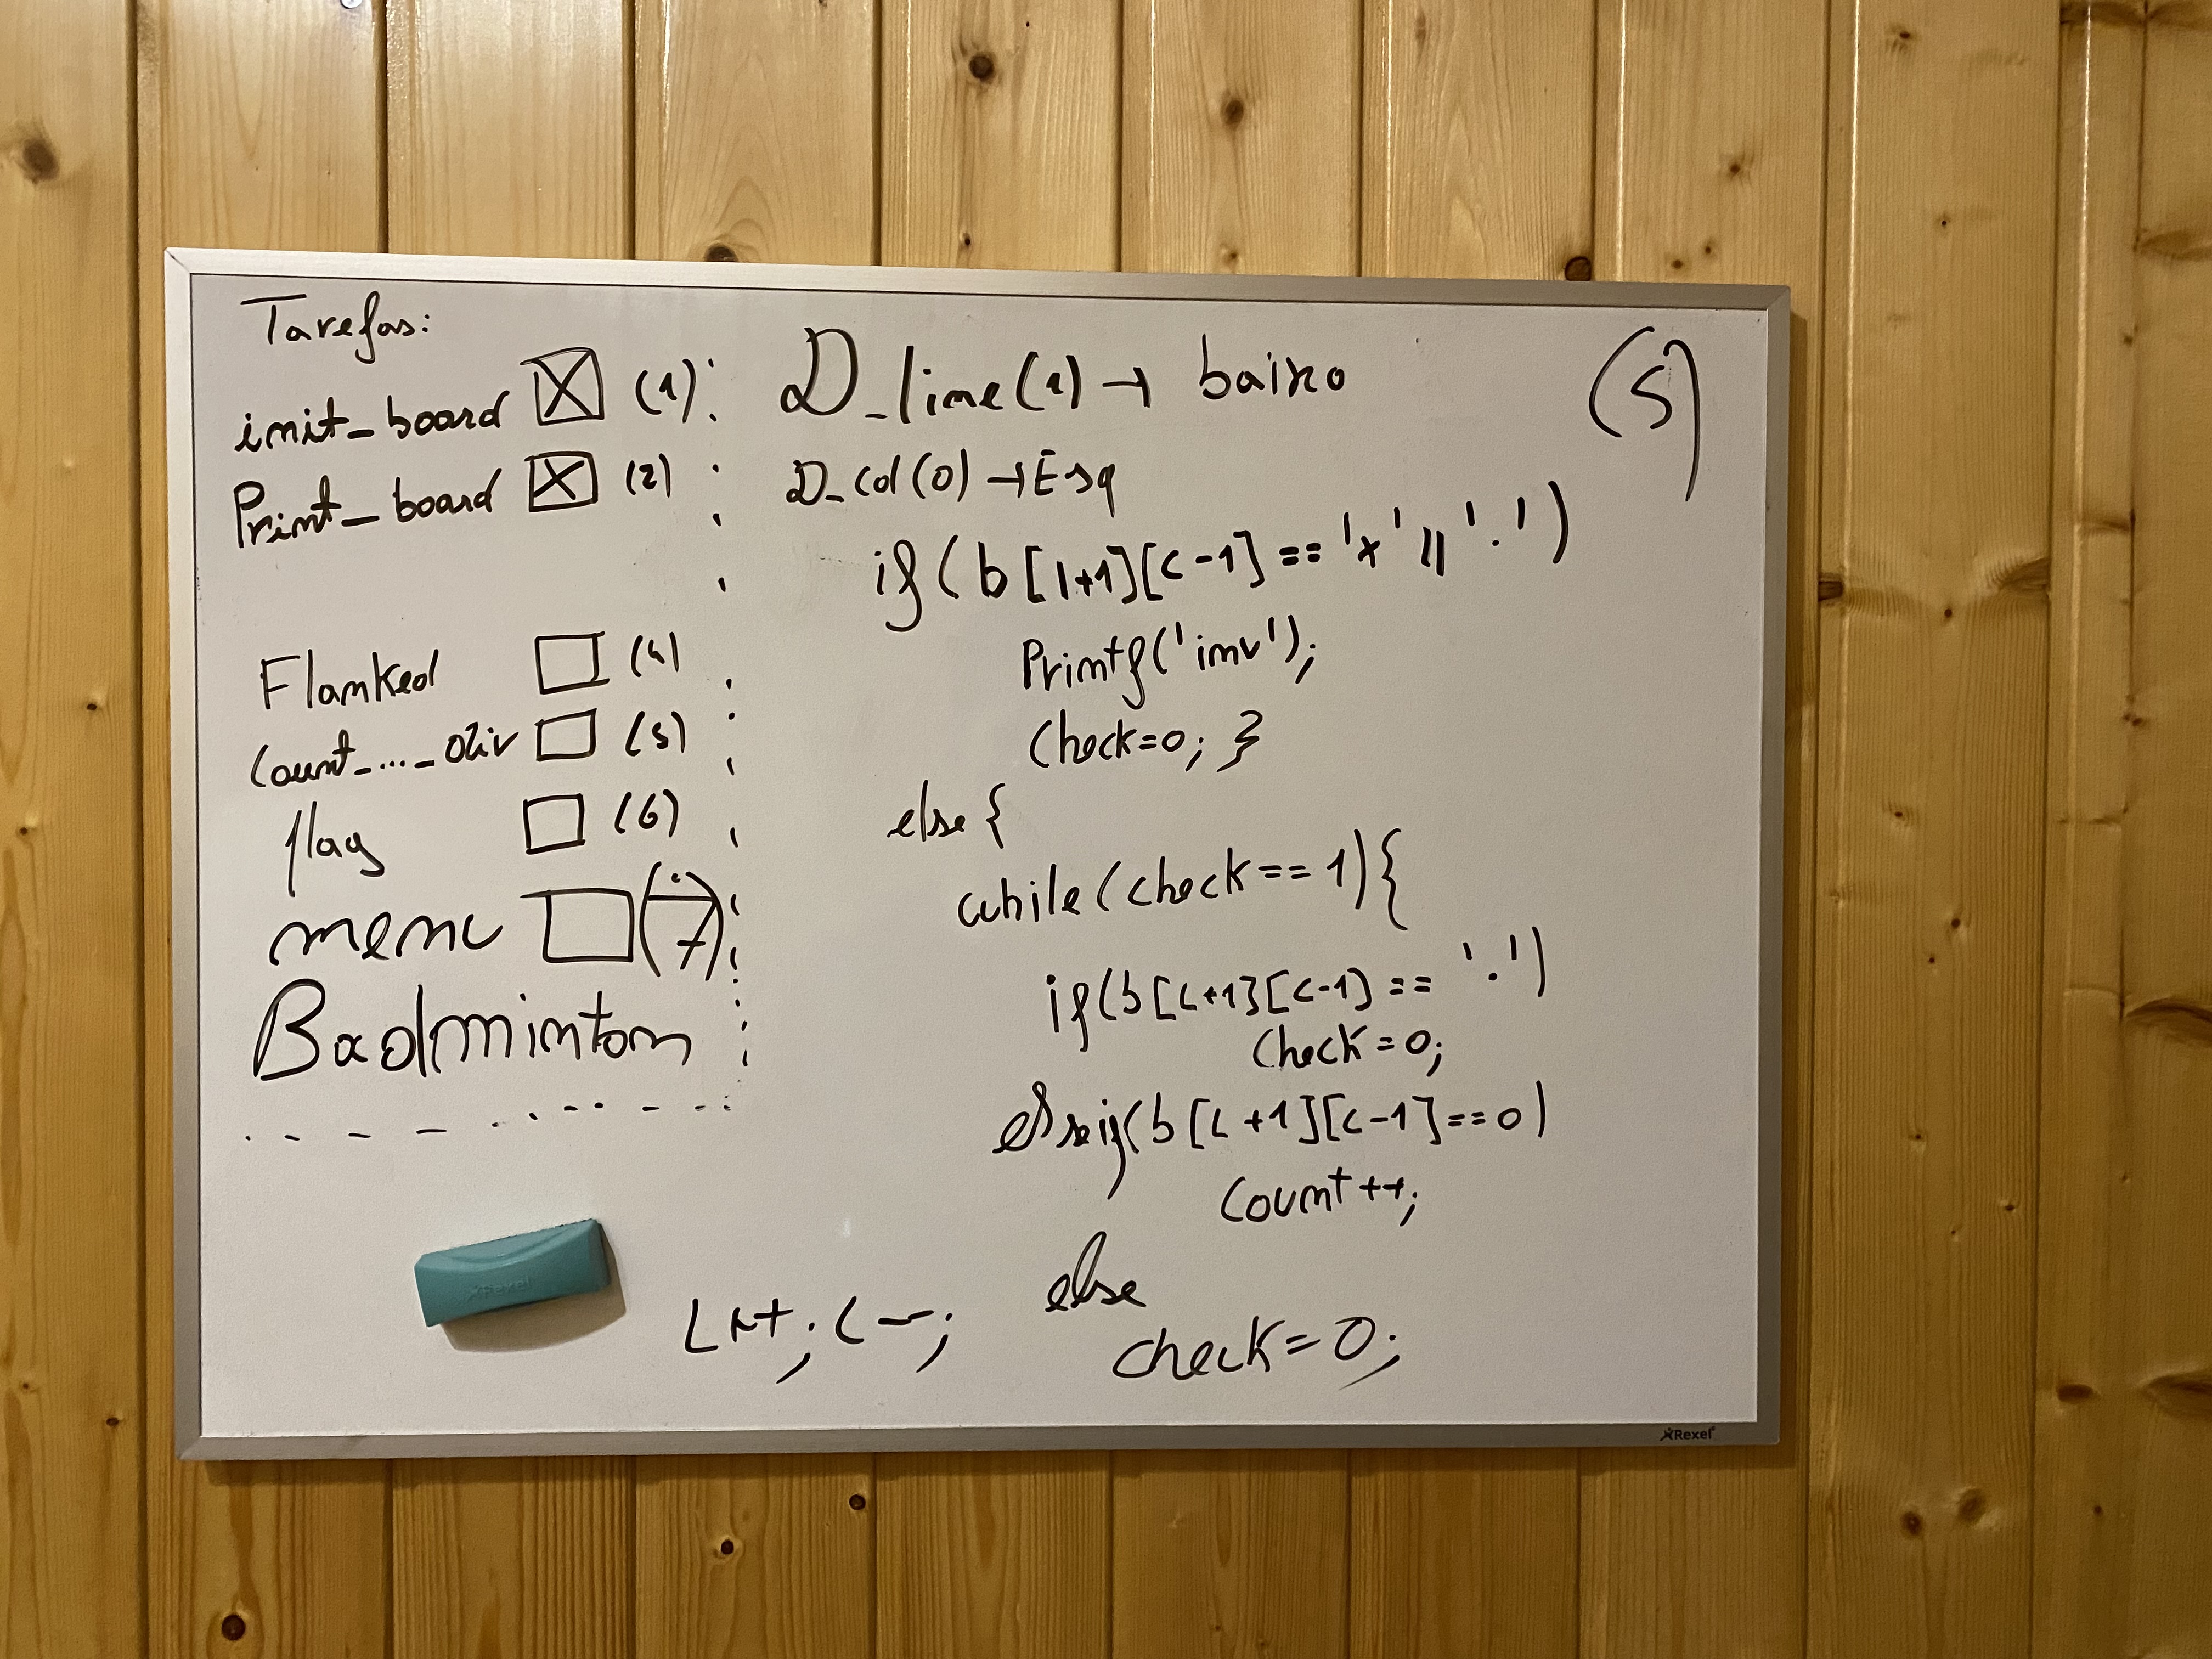 Tarefas:
init_board (1)
Print_board (2)
Flanked (4)
Count_..._
flag (6)
menu (7)
Badminton
D_line(1) → baixo
D_col(0) → Esq
(5)
if(b[l+1][c-1] == 'x' || '.')
Printf('inv');
Check=0; }
else {
while(check == 1){
if(b[L+1][c-1] == '.')
Check = 0;
else if(b[L+1][c-1] == 0)
Count++;
else
check = 0;
L++; C--;
Rexel
Rexel